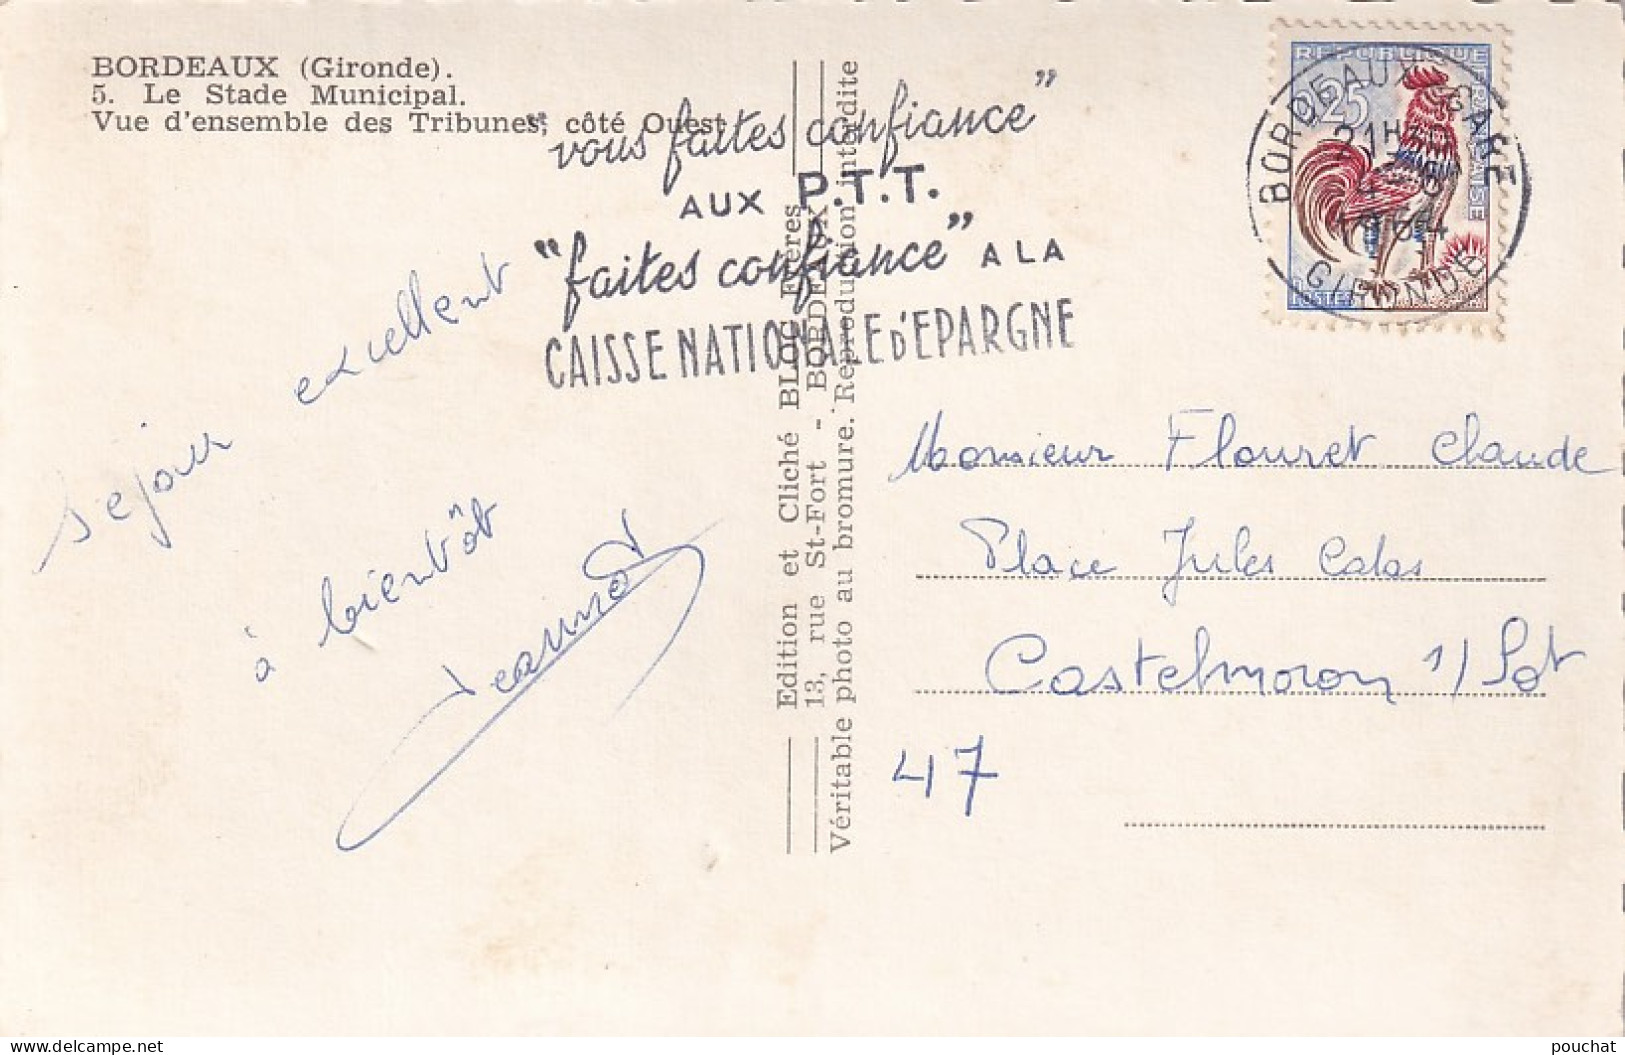 BORDEAUX (Gironde).
5. Le Stade Municipal.
Vue d'ensemble des Tribunes, côté Ouest
"vous faites confiance"
AUX P.T.T.
"faites confiance" A LA
CAISSE NATIONALE D'EPARGNE
REPUBLIQUE FRANÇAISE
0,25
POSTES
BORDEAUX GARE
21H30
1964
GIRONDE
séjour excellent
à bientôt
Edition et Cliché BLOC Frères
13, rue St-Fort - BORDEAUX
Véritable photo au bromure. Reproduction interdite
Monsieur Flouret Claude
Place Jules Calas
Castelmoron s/ Lot
47
pouchat
www.delcampe.net